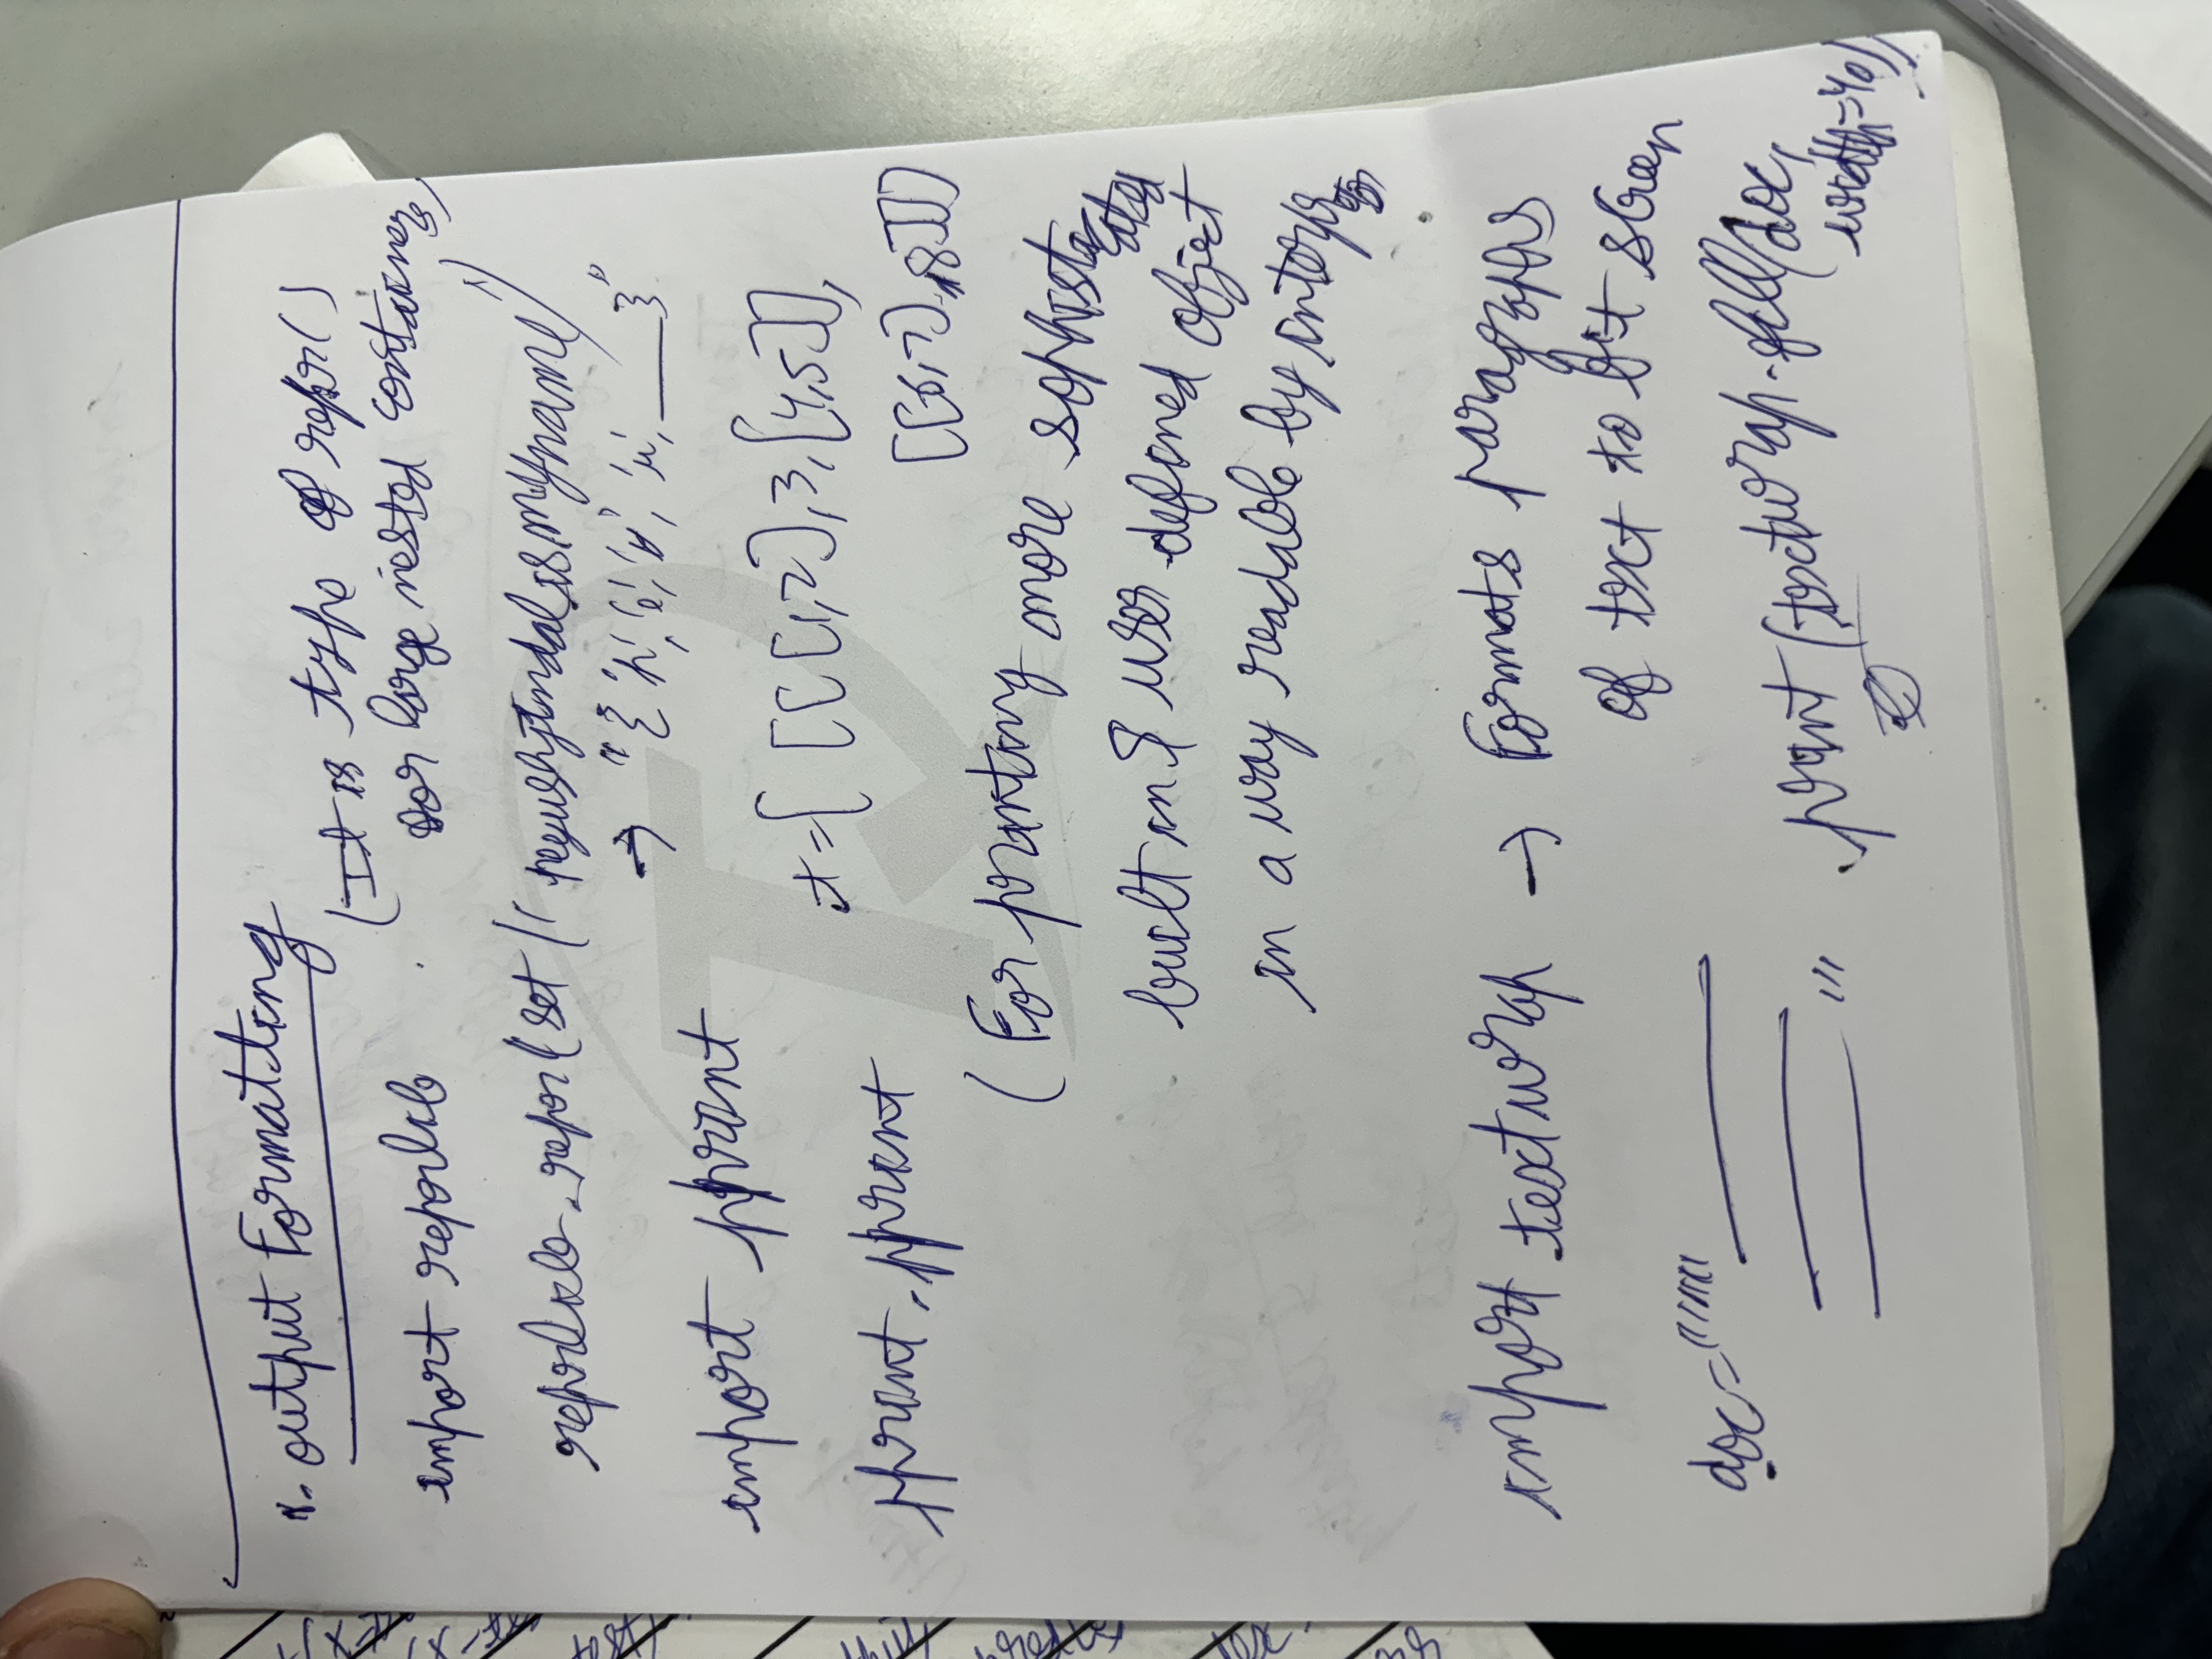 1. Output Formatting
(It is type of repr()
for large nested containers)
import reprlib
reprlib.repr(set(' is my name'))
→ "{'p', 'e', 'y', 'u', ___}"
import pprint
t = [ [[[1,2],3,[4,5]],
[[6,7],8]]]
pprint.pprint
(For printing more sophisticated
built in & user defined object
in a way readable by interpreter
import textwrap → Formats paragraphs
of text to fit screen
doc = """
""" print(textwrap.fill(doc,
width=40))